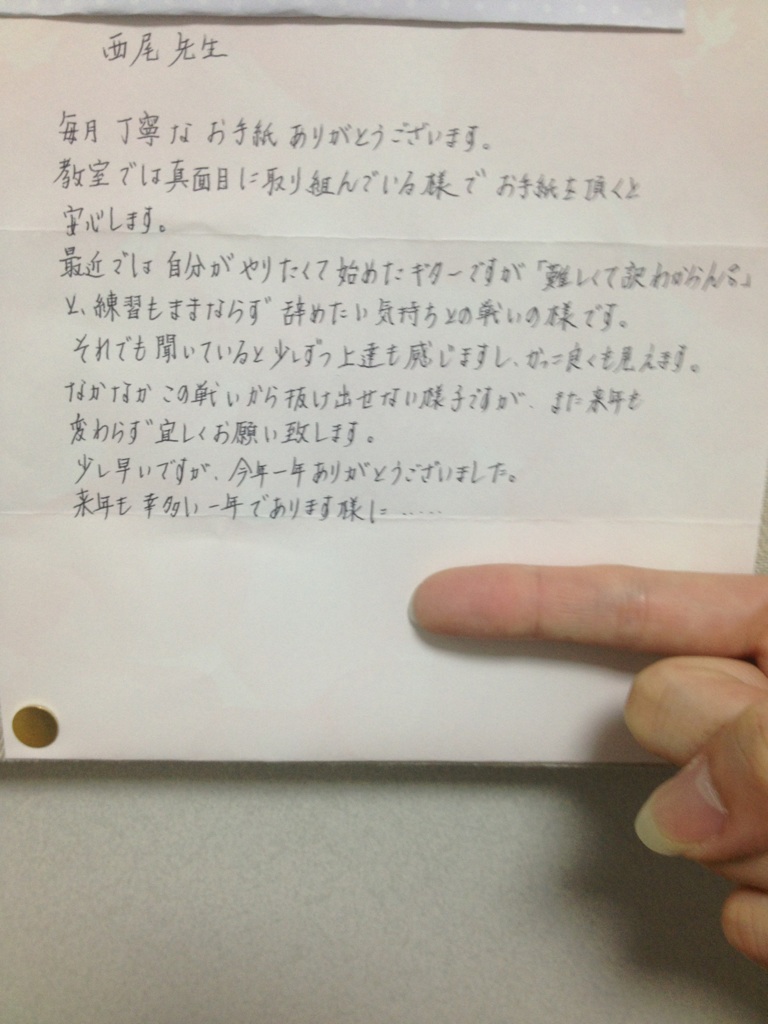 西尾先生
毎月丁寧なお手紙ありがとうございます。
教室では真面目に取り組んでいる様でお手紙を頂くと
安心します。
最近では自分がやりたくて始めたギターですが「難しくて訳わからん!!」
と、練習もままならず辞めたい気持ちとの戦いの様です。
それでも聞いていると少しずつ上達も感じますし、かっこ良くも見えます。
なかなかこの戦いから抜け出せない様子ですが、また来年も
変わらず宜しくお願い致します。
少し早いですが、今年一年ありがとうございました。
来年も幸多い一年であります様に……